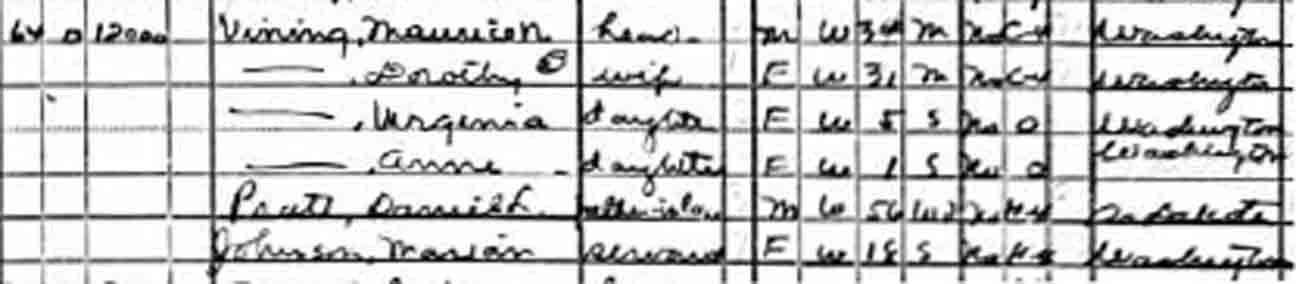 64 0 12000 Vining, Maurice H. head M W 34 M No C-4 Washington
——, Dorothy wife F W 31 M No C-4 Washington
——, Virginia daughter F W 5 S No 0 Washington
——, Anne daughter F W 1 S No 0 Washington
Pratt, Daniel L. father-in-law M W 56 Wd No H-4 N Dakota
Johnson, Marian servant F W 18 S No H-4 Washington